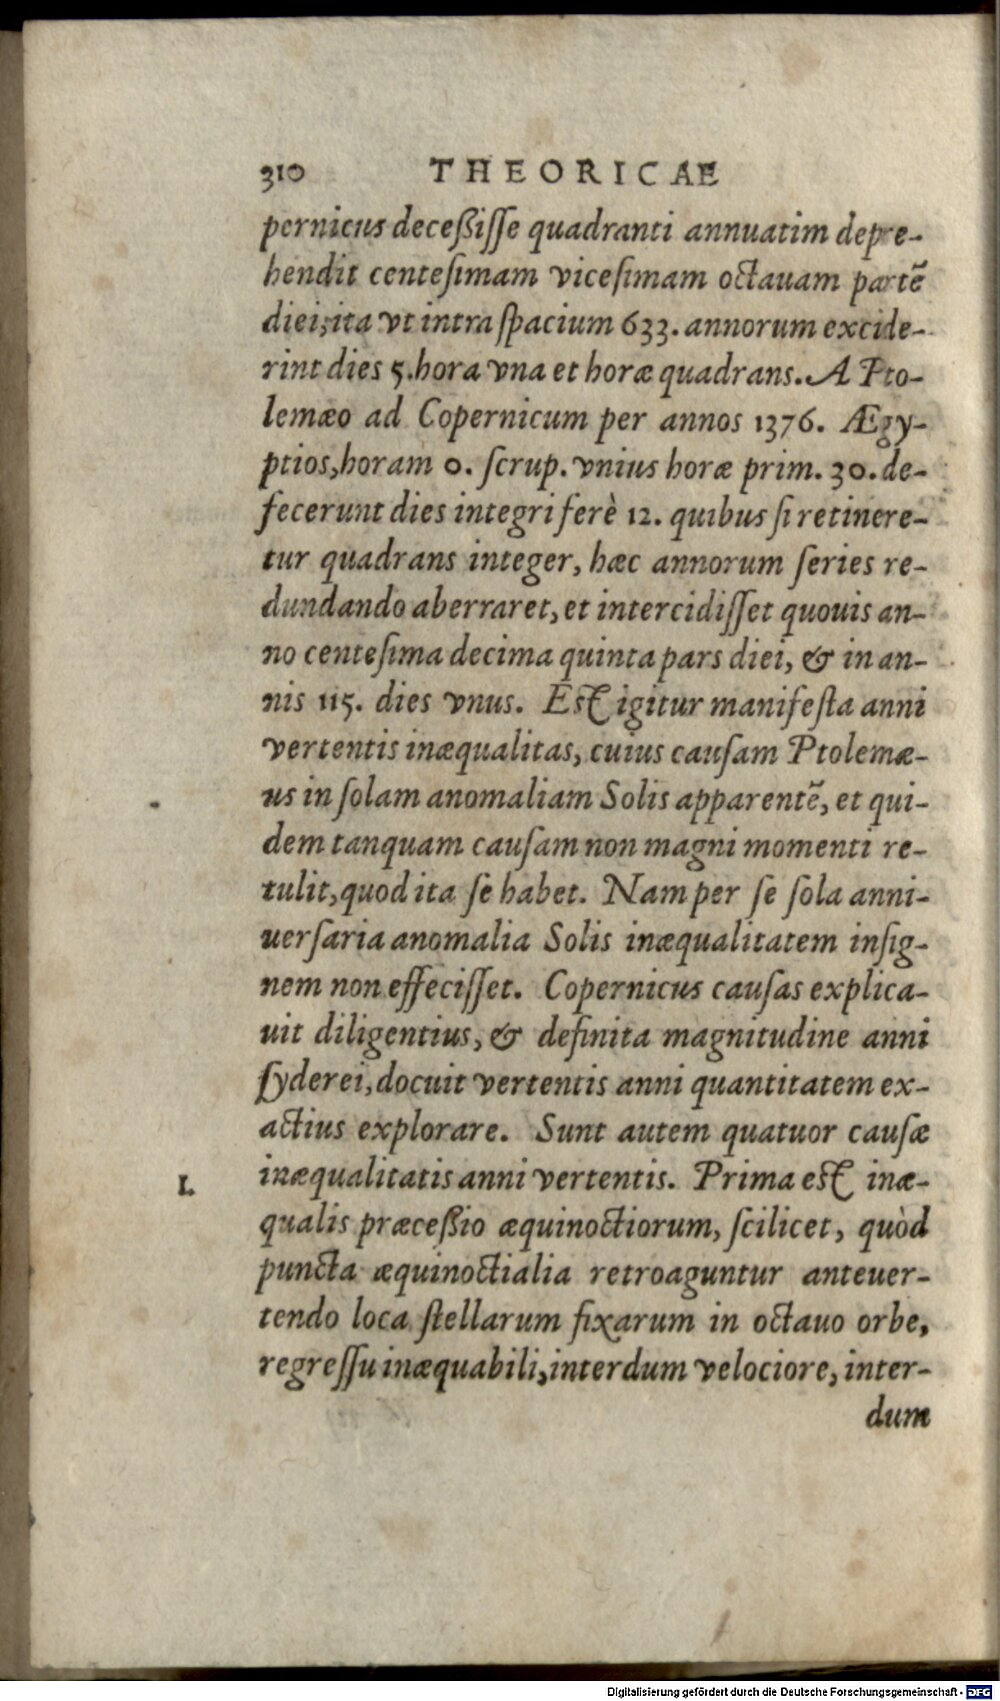 310 THEORICAE
pernicus deceßiſſe quadranti annuatim depre-
hendit centeſimam viceſimam octauam partē
diei, ita vt intra ſpacium 633. annorum excide-
rint dies 5. hora vna et horæ quadrans. A Pto-
lemæo ad Copernicum per annos 1376. Ægy-
ptios, horam 0. ſcrup. vnius horæ prim. 30. de-
fecerunt dies integri ferè 12. quibus ſi retinere-
tur quadrans integer, hæc annorum ſeries re-
dundando aberraret, et intercidiſſet quouis an-
no centeſima decima quinta pars diei, & in an-
nis 115. dies vnus. Eſt igitur manifeſta anni
vertentis inæqualitas, cuius cauſam Ptolemæ-
us in ſolam anomaliam Solis apparentē, et qui-
dem tanquam cauſam non magni momenti re-
tulit, quod ita ſe habet. Nam per ſe ſola anni-
uerſaria anomalia Solis inæqualitatem inſig-
nem non effeciſſet. Copernicus cauſas explica-
uit diligentius, & definita magnitudine anni
ſyderei, docuit vertentis anni quantitatem ex-
actius explorare. Sunt autem quatuor cauſæ
I. inæqualitatis anni vertentis. Prima eſt inæ-
qualis præceßio æquinoctiorum, ſcilicet, quòd
puncta æquinoctialia retroaguntur anteuer-
tendo loca ſtellarum fixarum in octauo orbe,
regreſſu inæquabili, interdum velociore, inter-
dum
Digitalisierung gefördert durch die Deutsche Forschungsgemeinschaft - DFG